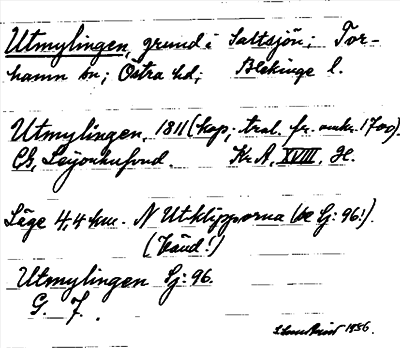 Utmylingen, grund i Saltsjön; Tor-
hamn sn; Östra hd; Blekinge l.
Utmylingen, 1811 (kop; trol. fr. omkr. 1700).
Ch, Lejonhufvud. Kr A, XVIII, H.
Läge 4,4 km. N Utklipporna (se Sj: 96!).
(Känd!)
Utmylingen Sj: 96.
G. J.
1936.